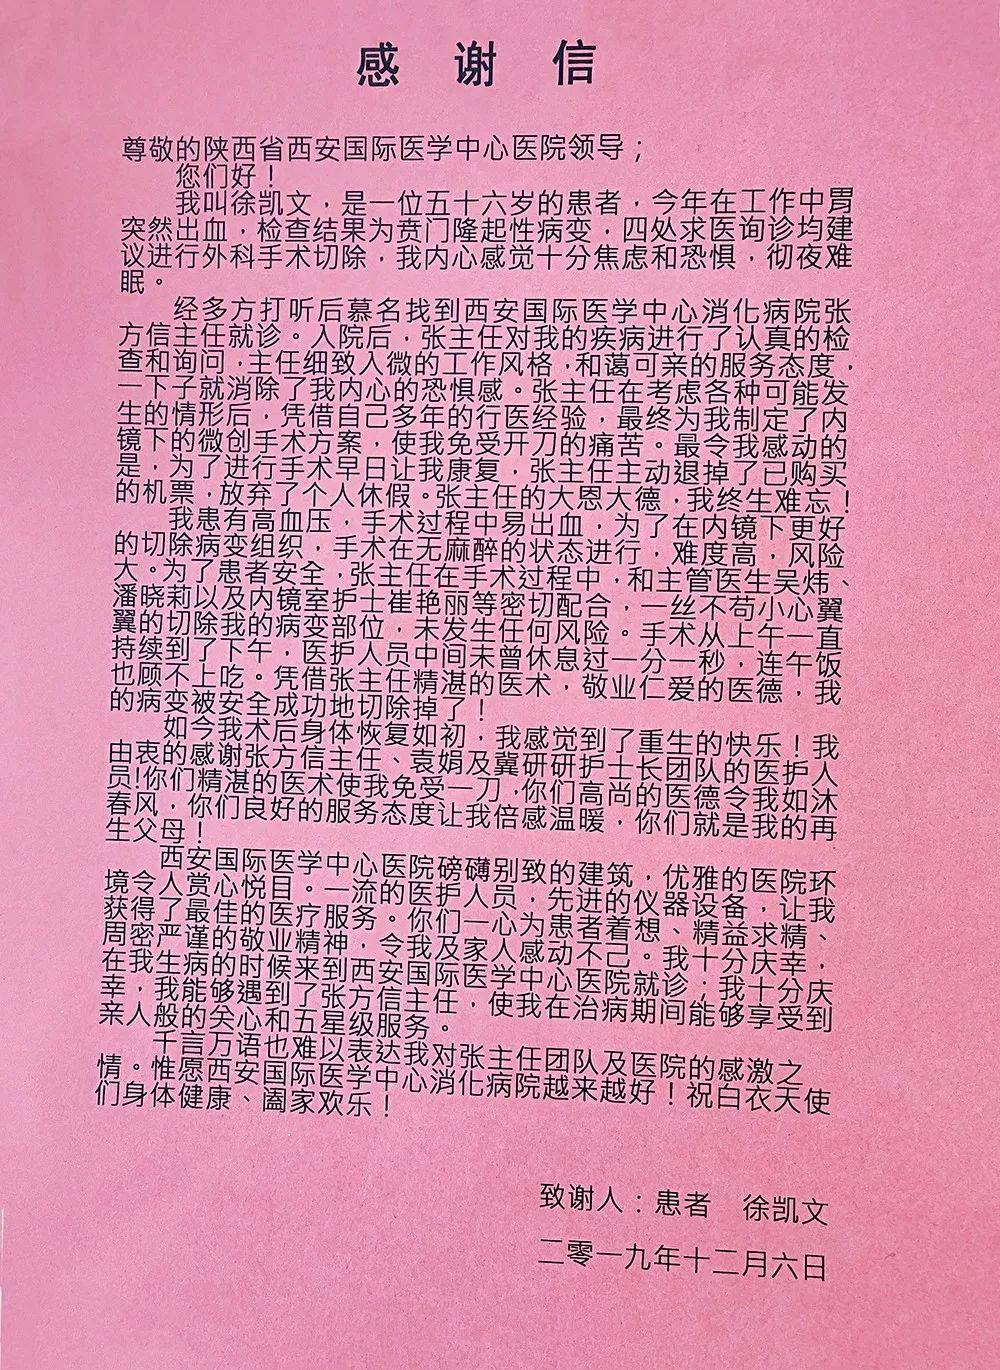 感 谢 信
尊敬的陕西省西安国际医学中心医院领导；
您们好！
我叫徐凯文，是一位五十六岁的患者，今年在工作中胃
突然出血，检查结果为贲门隆起性病变，四处求医询诊均建
议进行外科手术切除，我内心感觉十分焦虑和恐惧，彻夜难
眠。
经多方打听后慕名找到西安国际医学中心消化病院张
方信主任就诊。入院后，张主任对我的疾病进行了认真的检
查和询问，主任细致入微的工作风格，和蔼可亲的服务态度，
一下子就消除了我内心的恐惧感。张主任在考虑各种可能发
生的情形后，凭借自己多年的行医经验，最终为我制定了内
镜下的微创手术方案，使我免受开刀的痛苦。最令我感动的
是，为了进行手术早日让我康复，张主任主动退掉了己购买
的机票，放弃了个人休假。张主任的大恩大德，我终生难忘！
我患有高血压，手术过程中易出血，为了在内镜下更好
的切除病变组织，手术在无麻醉的状态进行，难度高，风险
大。为了患者安全，张主任在手术过程中，和主管医生吴炜、
潘晓莉以及内镜室护士崔艳丽等密切配合，一丝不苟小心翼
翼的切除我的病变部位，未发生任何风险。手术从上午一直
持续到了下午，医护人员中间未曾休息过一分一秒，连午饭
也顾不上吃。凭借张主任精湛的医术，敬业仁爱的医德，我
的病变被安全成功地切除掉了！
如今我术后身体恢复如初，我感觉到了重生的快乐！我
由衷的感谢张方信主任、袁娟及冀研研护士长团队的医护人
员！你们精湛的医术使我免受一刀，你们高尚的医德令我如沐
春风，你们良好的服务态度让我倍感温暖，你们就是我的再
生父母！
西安国际医学中心医院磅礴别致的建筑，优雅的医院环
境令人赏心悦目。一流的医护人员，先进的仪器设备，让我
获得了最佳的医疗服务。你们一心为患者着想、精益求精、
周密严谨的敬业精神，令我及家人感动不己。我十分庆幸，
在我生病的时候来到西安国际医学中心医院就诊；我十分庆
幸，我能够遇到了张方信主任，使我在治病期间能够享受到
亲人般的关心和五星级服务。
千言万语也难以表达我对张主任团队及医院的感激之
情。惟愿西安国际医学中心消化病院越来越好！祝白衣天使
们身体健康、阖家欢乐！
致谢人：患者 徐凯文
二零一九年十二月六日